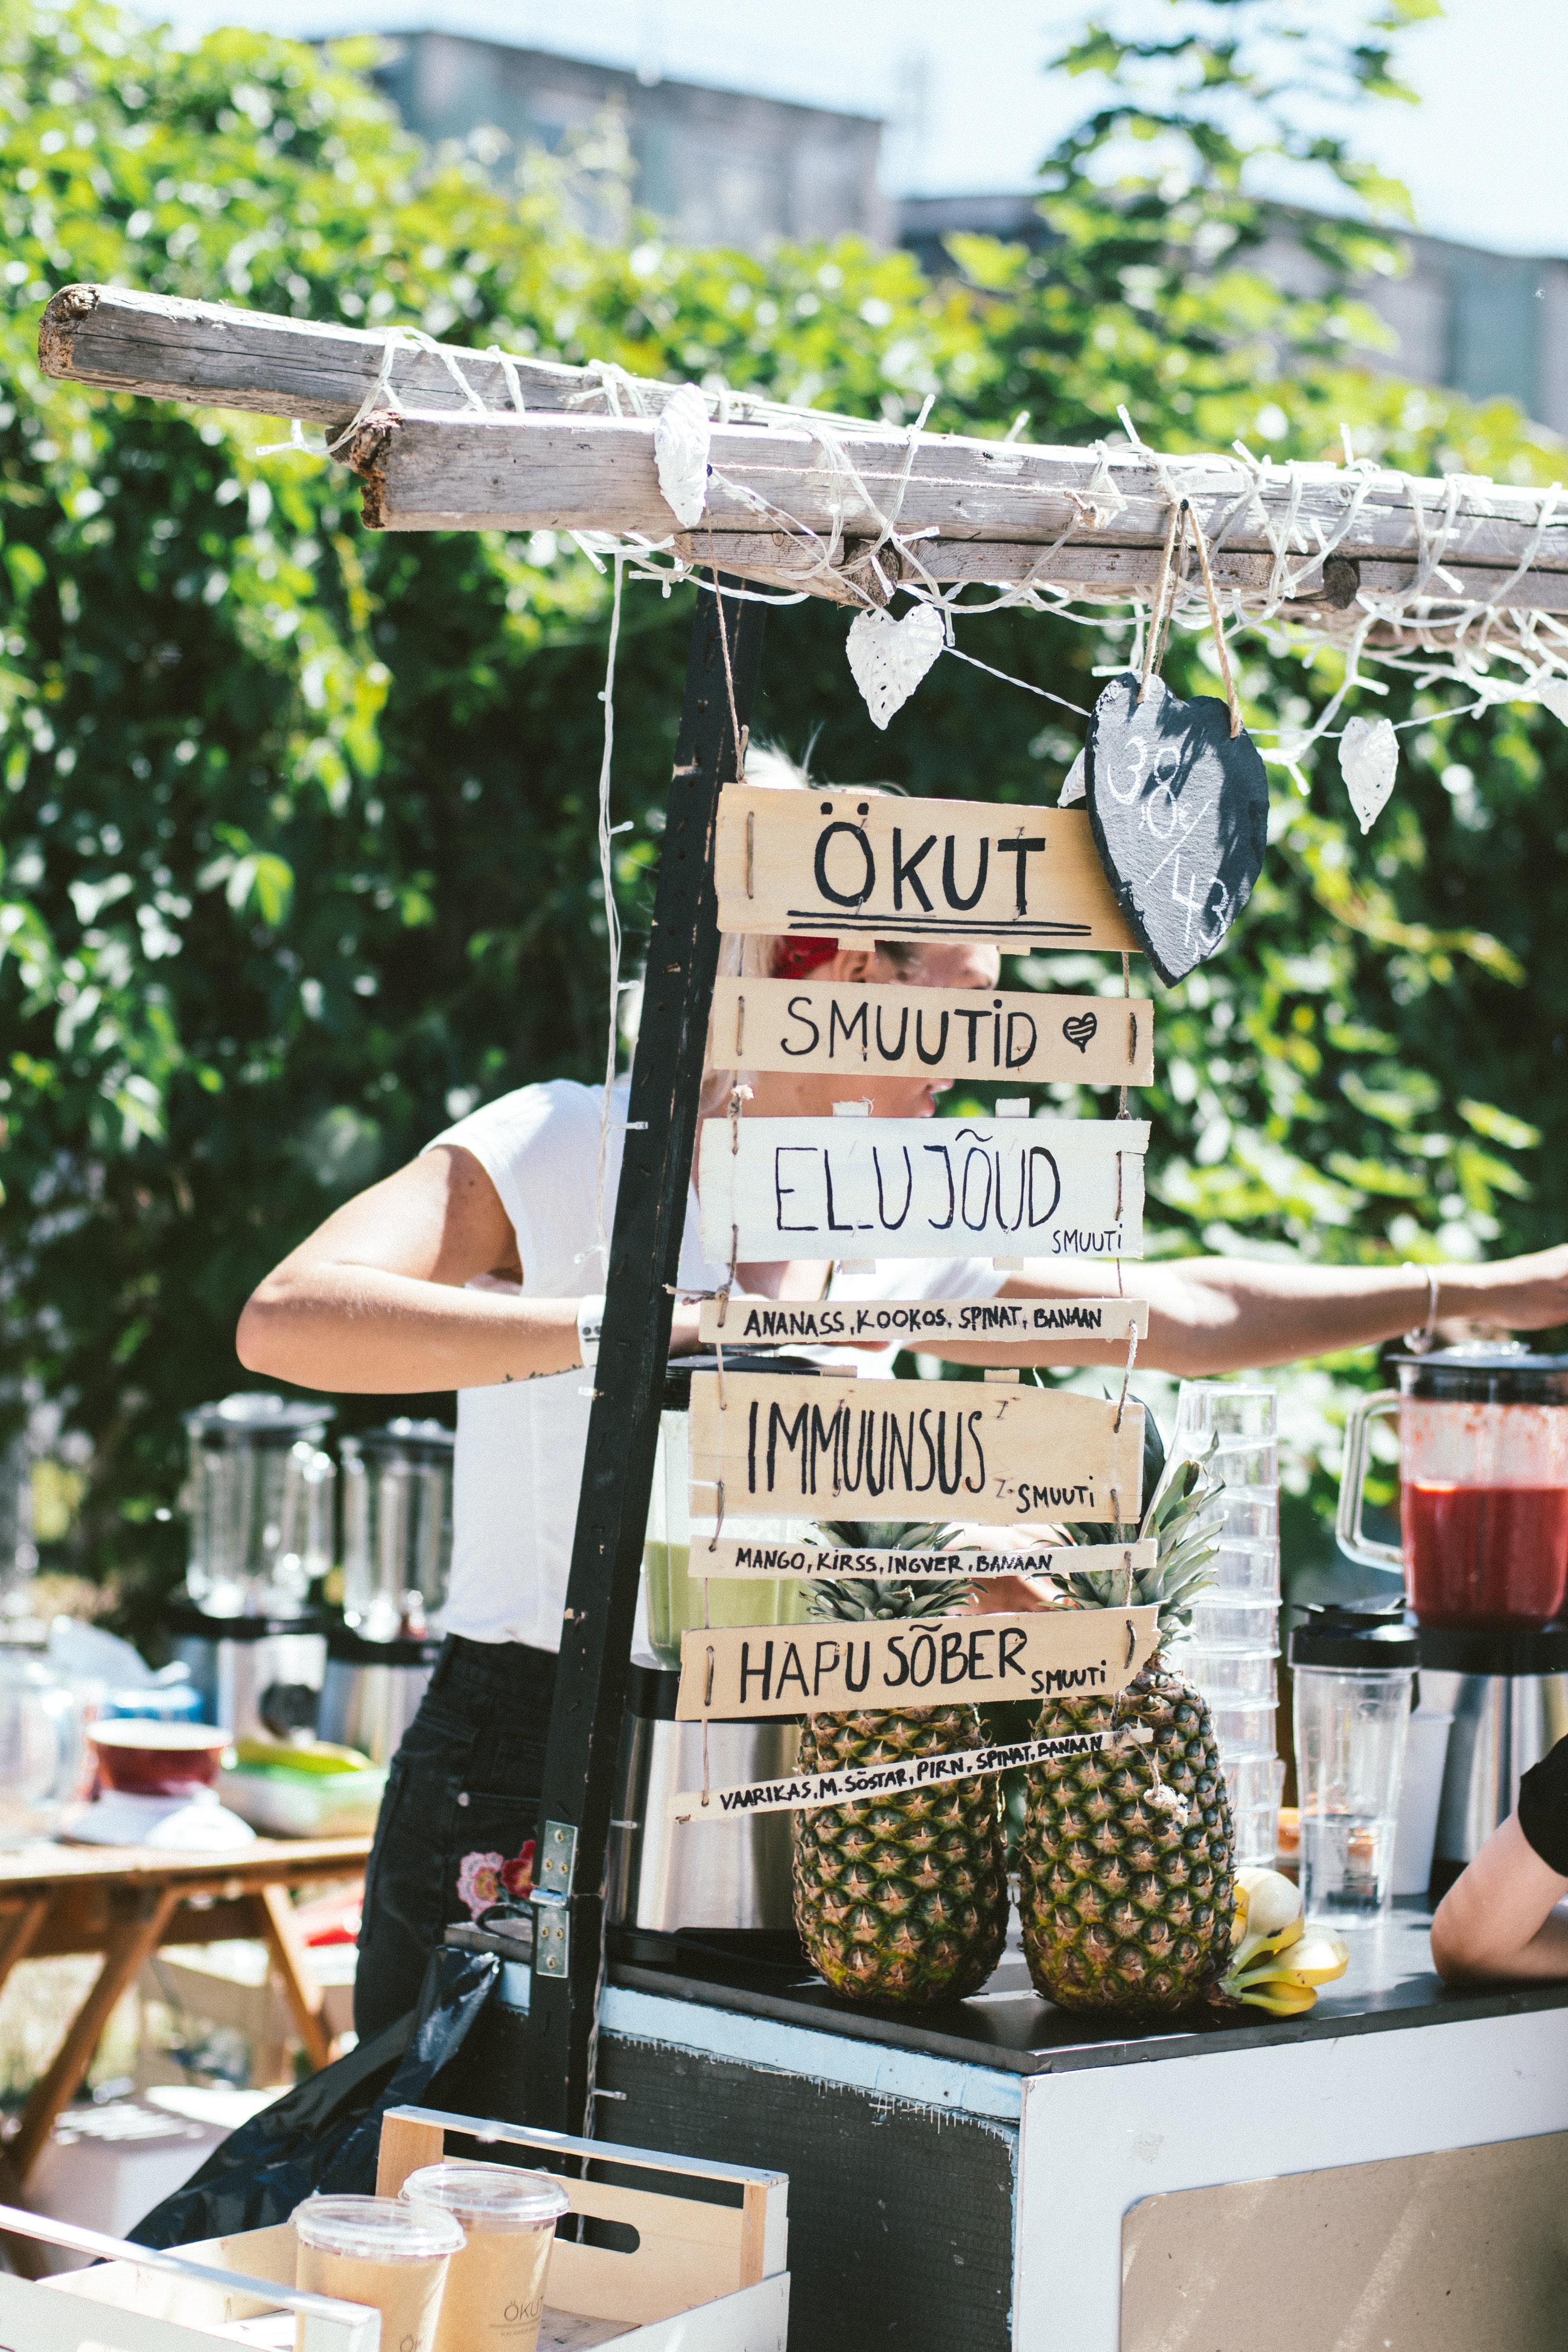 ÖKUT
38/43
SMUUTID
ELUJÕUD
SMUUTI
ANANASS, KOOKOS, SPINAT, BANAAN
IMMUUNSUS
SMUUTI
MANGO, KIRSS, INGVER, BANAAN
HAPU SÕBER
SMUUTI
VAARIKAS, M. SÕSTAR, PIRN, SPINAT, BANAAN
ÖKUT